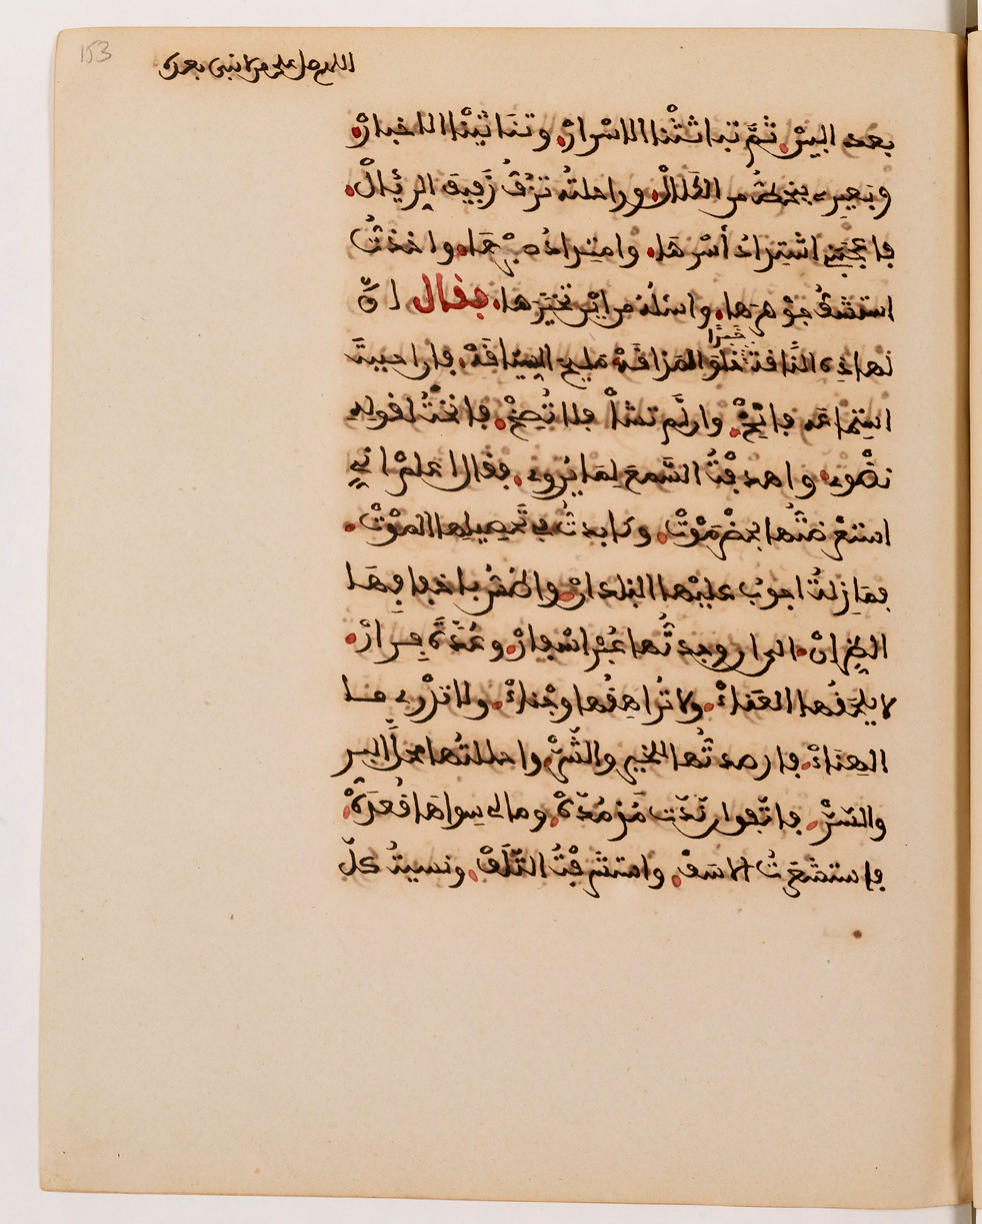 153
اللهم صل على من لا نبي بعده
بعد البين. ثم تباثثنا الاسرار. وتناثينا الاخبار.
وبعيرى ينحط من الكلال. وراحلته تزف زفيف الريال.
فاعجبني اشتداد أسرها. وامتداد صبرها. واخذت
استشف جوهرها. واسئله من اين تخيرها. فقال ان
لهاذه الناقة خبرا حلو المذاقة مليح السياقة. فان احببت
استماعه فانخ. وان لم تشأ فلا تصخ. فانخت لقوله
نضوى. واهدفت السمع لما يروى. فقال اعلم اني
استعرضتها بحضرموت. وكابدت في تحصيلها الموت.
فما زلت اجوب عليها البلدان. واطس باخفافها
الظران. الى ان وجدتها عبر اسفار. وعدة قرار.
لا يلحقها العناء. ولا تراهقها وجناء. ولا تدرى ما
الهناء. فارصدتها للخير والشر. واحللتها محل البر
والسر. فاتفق ان ندت مذ مدة. وما لى سواها قعدة.
فاستشعرت الاسف. واستشرفت التلف. ونسيت كل